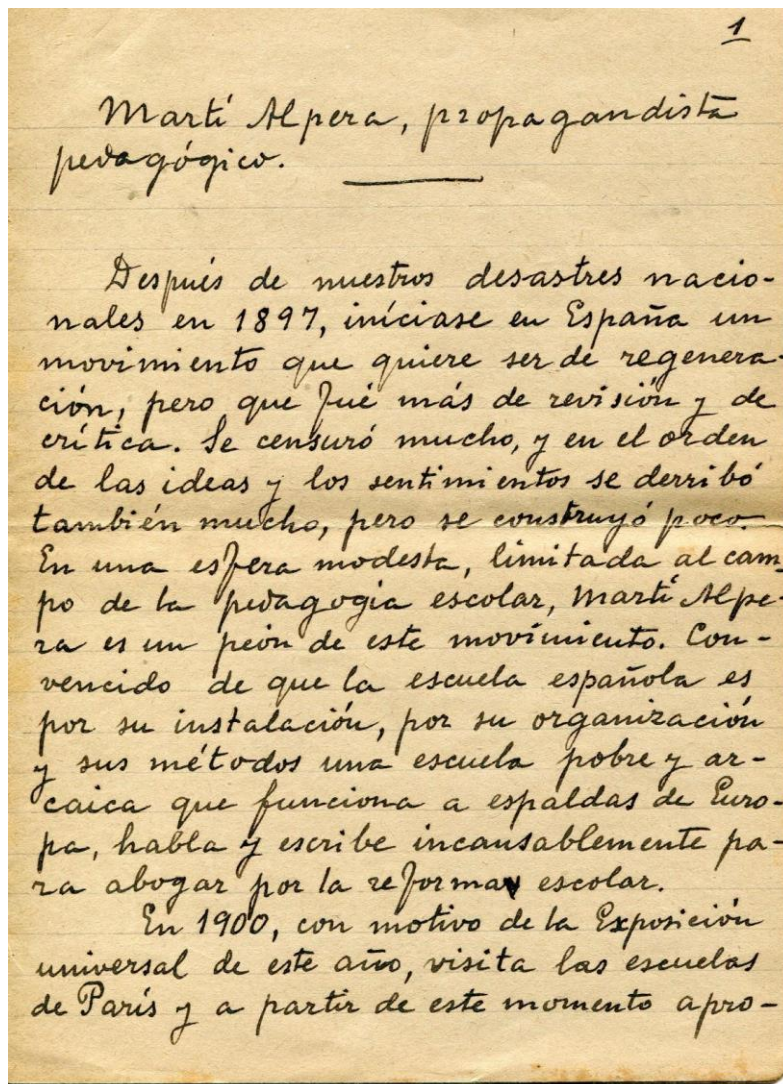 1
Martí Alpera, propagandista
pedagógico.
Después de nuestros desastres nacio-
nales en 1897, iníciase en España un
movimiento que quiere ser de regenera-
ción, pero que fué más de revisión y de
crítica. Se censuró mucho, y en el orden
de las ideas y los sentimientos se derribó
también mucho, pero se construyó poco.
En una esfera modesta, limitada al cam-
po de la pedagogia escolar, Martí Alpe-
ra es un peón de este movimiento. Con-
vencido de que la escuela española es
por su instalación, por su organización
y sus métodos una escuela pobre y ar-
caica que funciona a espaldas de Euro-
pa, habla y escribe incansablemente pa-
ra abogar por la reforma escolar.
En 1900, con motivo de la Exposición
universal de este año, visita las escuelas
de París y a partir de este momento apro-